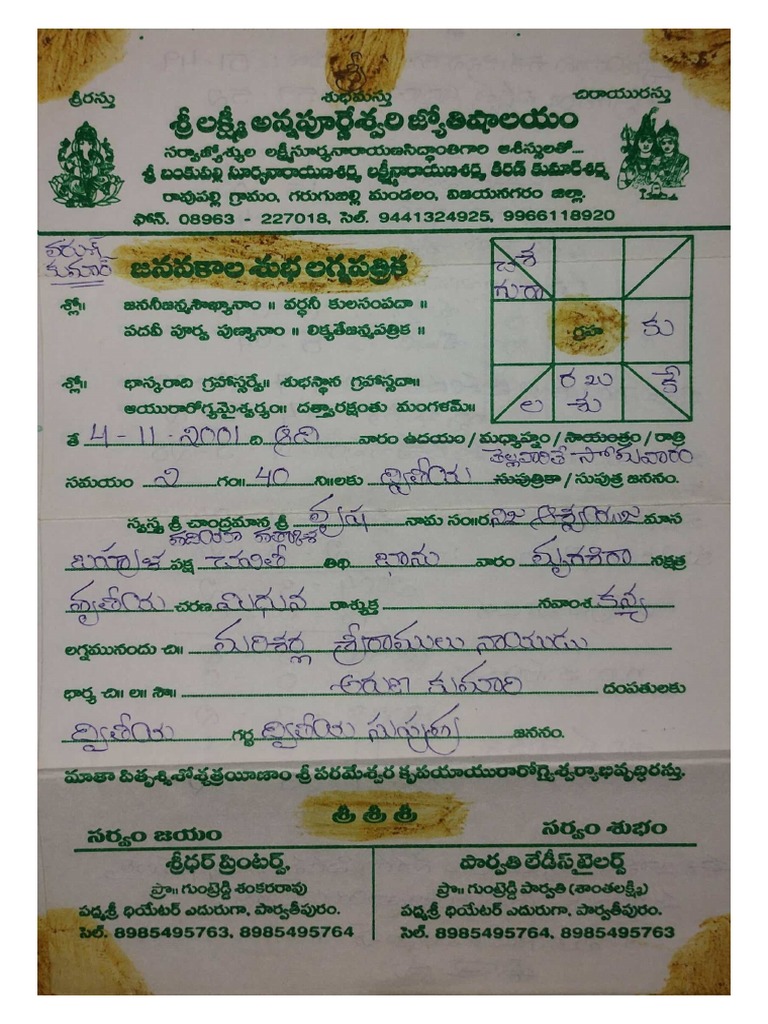 శ్రీరస్తు శుభమస్తు చిరాయురస్తు
శ్రీ లక్ష్మీ అన్నపూర్ణేశ్వరి జ్యోతిషాలయం
సర్వాజ్యోశ్యుల లక్ష్మీసూర్యనారాయణసిద్ధాంతిగారి ఆశీస్సులతో....
శ్రీ బంకుపల్లి సూర్యనారాయణశర్మ, లక్ష్మీనారాయణశర్మ, కిరణ్ కుమార్‌శర్మ
రావుపల్లి గ్రామం, గరుగుబిల్లి మండలం, విజయనగరం జిల్లా.
ఫోన్. 08963 - 227018, సెల్. 9441324925, 9966118920
వరుణ్
కుమార్
జననకాల శుభ లగ్నపత్రిక
చ శ
గు రా
గ్రహ
కు
ల
ర బు
శు
కే
శ్లో॥ జననీజన్మసౌఖ్యానాం ॥ వర్ధనీ కులసంపదా ॥
పదవీ పూర్వ పుణ్యానాం ॥ లిఖ్యతేజన్మపత్రిక ॥
శ్లో॥ భాస్కరాది గ్రహాస్సర్వే॥ శుభస్థాన గ్రహాస్సదా॥
ఆయురారోగ్యమైశ్వర్యం॥ దత్వారక్షంతు మంగళమ్॥
తే 4-11-2001 ది ఆది వారం ఉదయం / మధ్యాహ్నం / సాయంత్రం / రాత్రి
తెల్లవారితే సోమవారం
సమయం 2 గం॥ 40 ని॥లకు ద్వితీయ సుపుత్రికా / సుపుత్ర జననం.
స్వస్తిశ్రీ చాంద్రమాన శ్రీ వృష నామ సం॥ర నిజ ఆశ్వయుజ మాస
బహుళ పక్ష చవితి తిథి భాను వారం మృగశిరా నక్షత్ర
తృతీయ చరణ మిధున రాశ్యుక్త నవాంశ కన్య
లగ్నమునందు చి॥ మరిశర్ల శ్రీరాములు నాయుడు
భార్య చి॥ ల॥ సౌ॥ అరుణ కుమారి దంపతులకు
ద్వితీయ గర్భ ద్వితీయ సుపుత్ర జననం.
మాతా పితృశ్శిశోశ్చత్రయీణాం శ్రీ పరమేశ్వర కృపయాయురారోగ్యైశ్వర్యాభివృద్ధిరస్తు.
శ్రీ శ్రీ శ్రీ
సర్వం జయం సర్వం శుభం
శ్రీధర్ ప్రింటర్స్,
ప్రొ॥ గుంట్రెడ్డి శంకరరావు
పద్మశ్రీ థియేటర్ ఎదురుగా, పార్వతీపురం.
సెల్. 8985495763, 8985495764
పార్వతి లేడీస్ టైలర్స్
ప్రొ॥ గుంట్రెడ్డి పార్వతి (శాంతలక్ష్మి)
పద్మశ్రీ థియేటర్ ఎదురుగా, పార్వతీపురం.
సెల్. 8985495764, 8985495763